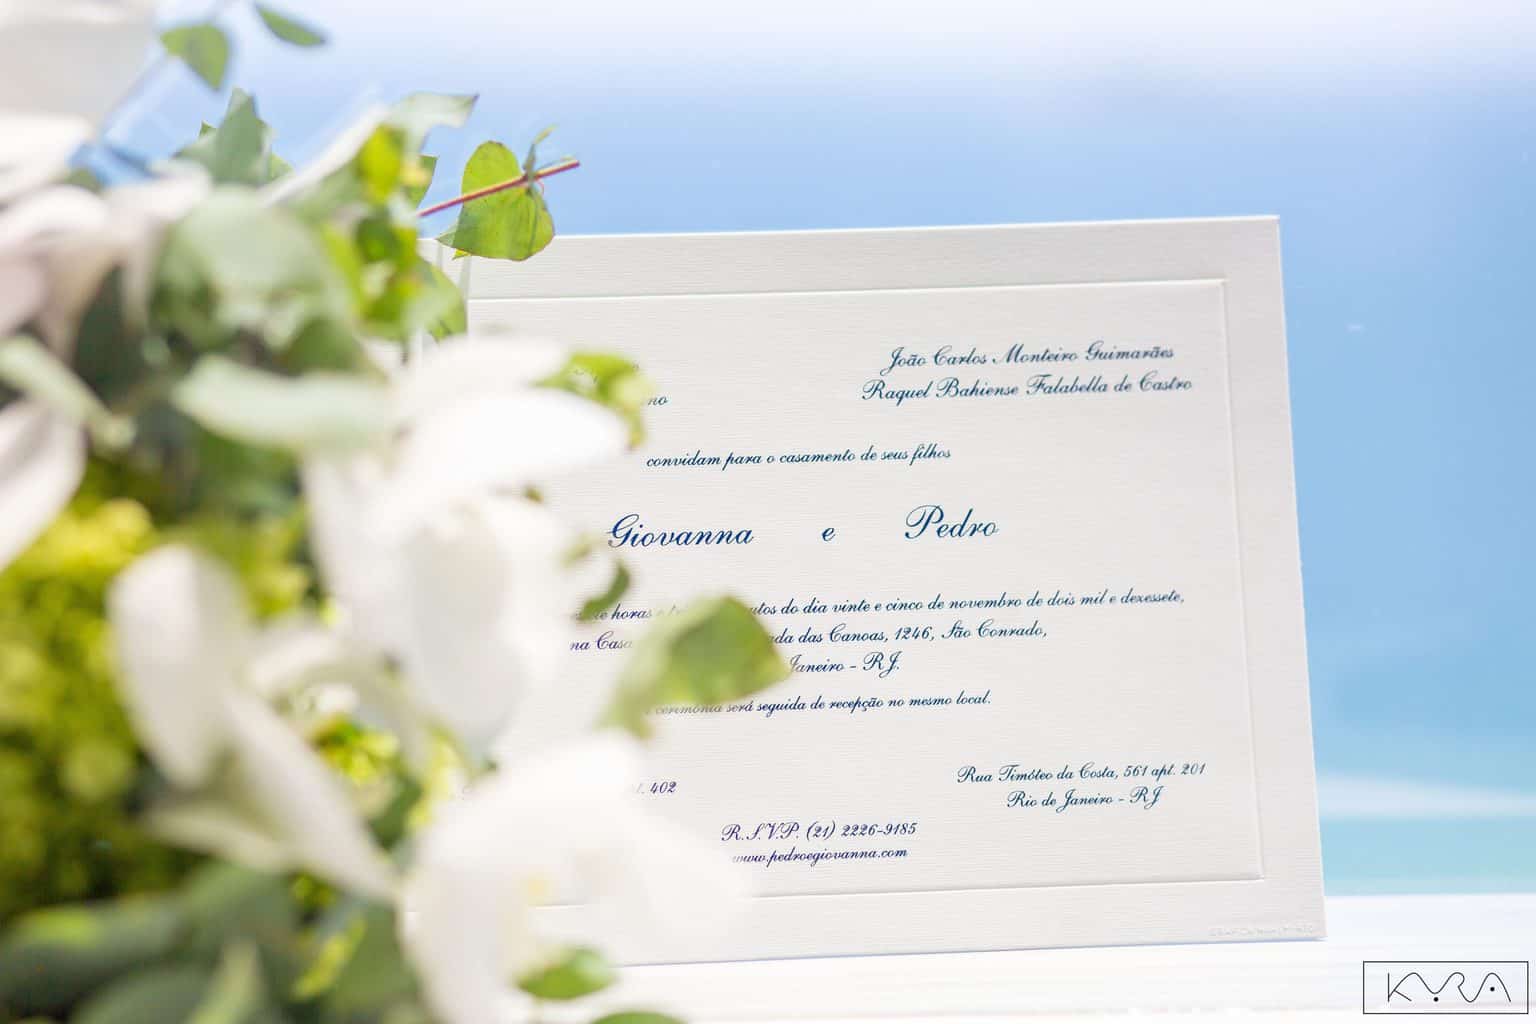 João Carlos Monteiro Guimarães
Raquel Bahiense Falabella de Castro
convidam para o casamento de seus filhos
Giovanna e Pedro
horas do dia vinte e cinco de novembro de dois mil e dezessete,
na Casa das Canoas, 1246, São Conrado,
Janeiro - RJ.
cerimônia será seguida de recepção no mesmo local.
402
Rua Timóteo da Costa, 561 apt. 201
Rio de Janeiro - RJ
R.S.V.P. (21) 2226-9185
www.pedroegiovanna.com
KYRA